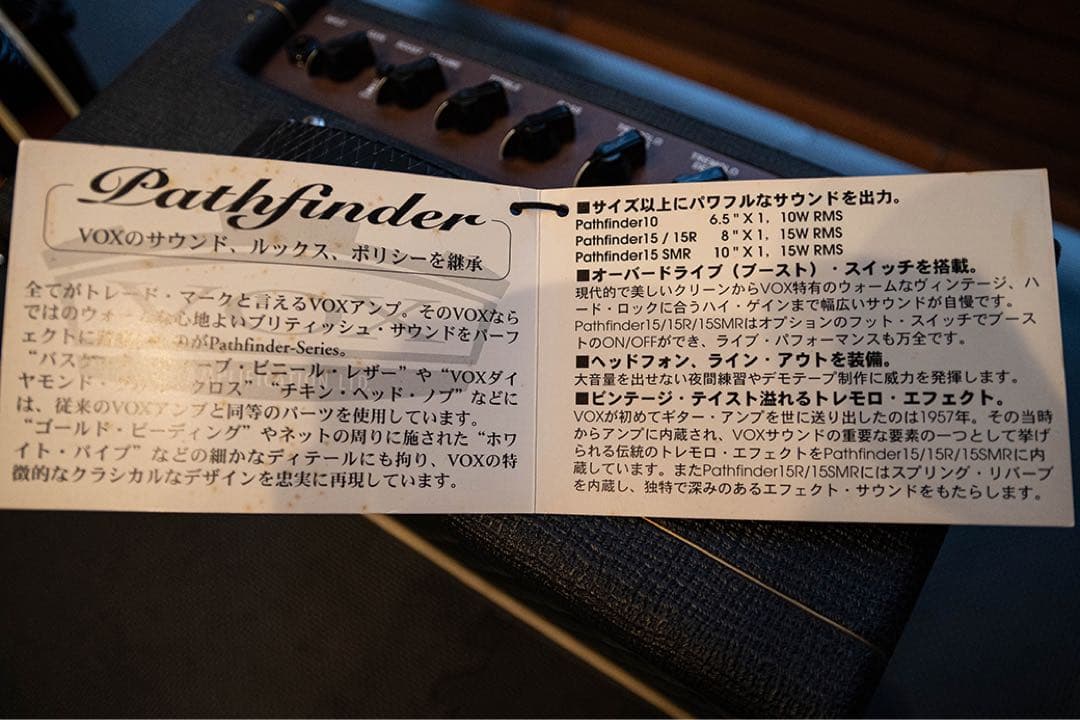 Pathfinder
VOXのサウンド、ルックス、ポリシーを継承
全てがトレード・マークと言えるVOXアンプ。そのVOXなら
ではのウォームな心地よいブリティッシュ・サウンドをパーフ
ェクトに のがPathfinder-Series。
“バス ーブ・ビニール・レザー” や “VOXダイ
ヤモンド・ クロス” “チキン・ヘッド・ノブ” などに
は、従来のVOXアンプと同等のパーツを使用しています。
“ゴールド・ビーディング” やネットの周りに施された “ホワ
イト・パイプ” などの細かなディテールにも拘り、VOXの特
徴的なクラシカルなデザインを忠実に再現しています。
■サイズ以上にパワフルなサウンドを出力。
Pathfinder10 6.5 " X 1, 10W RMS
Pathfinder15 / 15R 8 " X 1, 15W RMS
Pathfinder15 SMR 10 " X 1, 15W RMS
■オーバードライブ（ブースト）・スイッチを搭載。
現代的で美しいクリーンからVOX特有のウォームなヴィンテージ、ハ
ード・ロックに合うハイ・ゲインまで幅広いサウンドが自慢です。
Pathfinder15/15R/15SMRはオプションのフット・スイッチでブース
トのON/OFFができ、ライブ・パフォーマンスも万全です。
■ヘッドフォン、ライン・アウトを装備。
大音量を出せない夜間練習やデモテープ制作に威力を発揮します。
■ビンテージ・テイスト溢れるトレモロ・エフェクト。
VOXが初めてギター・アンプを世に送り出したのは1957年。その当時
からアンプに内蔵され、VOXサウンドの重要な要素の一つとして挙げ
られる伝統のトレモロ・エフェクトをPathfinder15/15R/15SMRに内
蔵しています。またPathfinder15R/15SMRにはスプリング・リバーブ
を内蔵し、独特で深みのあるエフェクト・サウンドをもたらします。